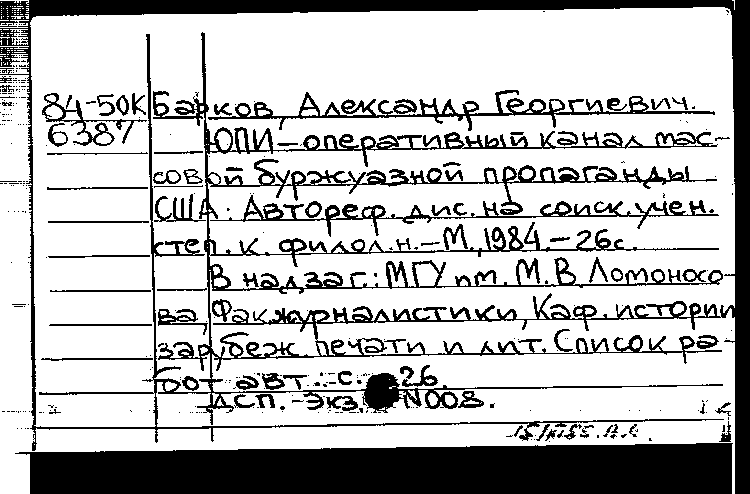 84-50К Барков, Александр Георгиевич.
6387 ЮПИ – оперативный канал мас-
совой буржуазной пропаганды
США: Автореф. дис. на соиск. учен.
степ. к. филол. н. – М., 1984. – 26с.
В надзаг.: МГУ им. М. В. Ломоносо-
ва, Фак. журналистики, Каф. истории
зарубеж. печати и лит. Список ра-
бот авт.: с. 26.
ДСП. – Экз. N008.